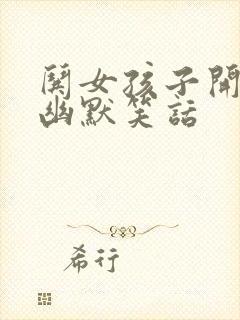 鬨女孩子開
幽默笑話
希行